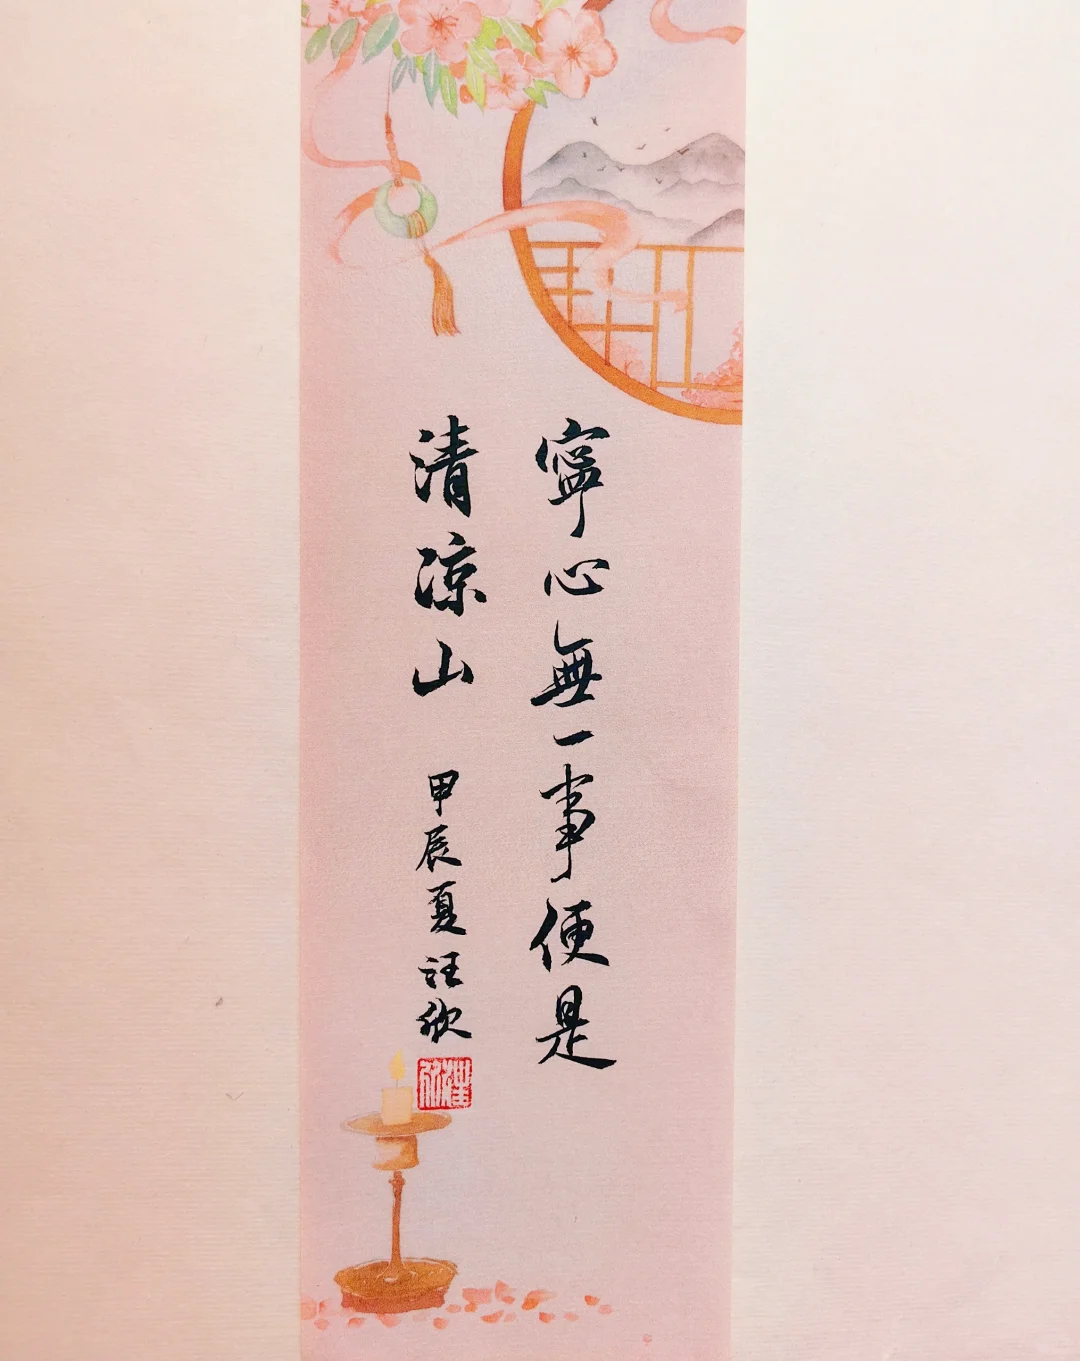 寧心無一事便是
清涼山 甲辰夏 汪欣